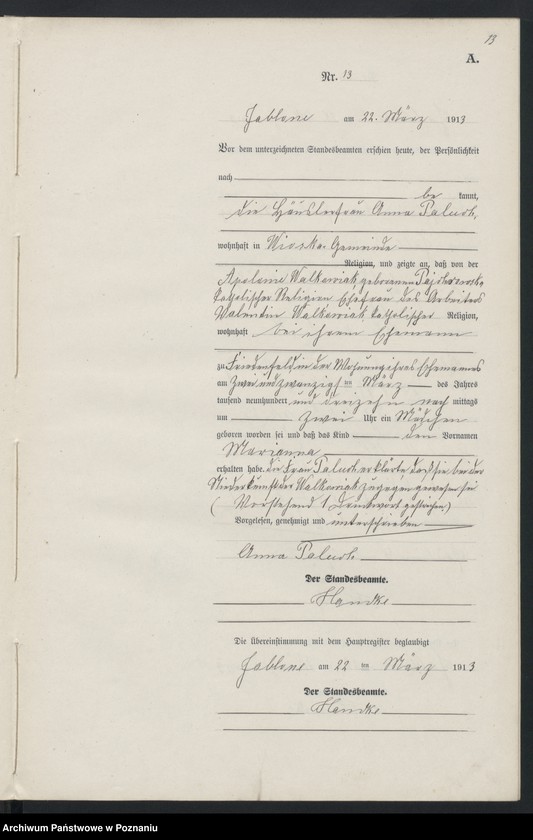 13
A.
Nr. 13
Jablone am 22. März 1913
Vor dem unterzeichneten Standesbeamten erschien heute, der Persönlichkeit
nach
be kannt,
die Häuslerfrau Anna Paluch,
wohnhaft in Wioska Gemeinde
Religion, und zeigte an, daß von der
Apolonie Walkowiak geborenen
katholischer Religion Ehefrau des Arbeiters
Valentin Walkowiak katholischer Religion,
wohnhaft bei ihrem Ehemann
zu Friedenfeld in der Wohnung ihres Ehemannes
am zwei und zwanzigsten März des Jahres
tausend neunhundert und dreizehn nach mittags
um zwei Uhr ein Mädchen
geboren worden sei und daß das Kind den Vornamen
Marianna
erhalten habe. die Frau Paluch erklärte daß sie bei der
Niederkunft der Walkowiak zugegen gewesen sei
(Vorstehend 1 Druckwort gestrichen.)
Vorgelesen, genehmigt und unterschrieben
Anna Paluch
Der Standesbeamte.
Handke
Die Übereinstimmung mit dem Hauptregister beglaubigt
Jablone am 22 ten März 1913
Der Standesbeamte.
Handke
Archiwum Państwowe w Poznaniu